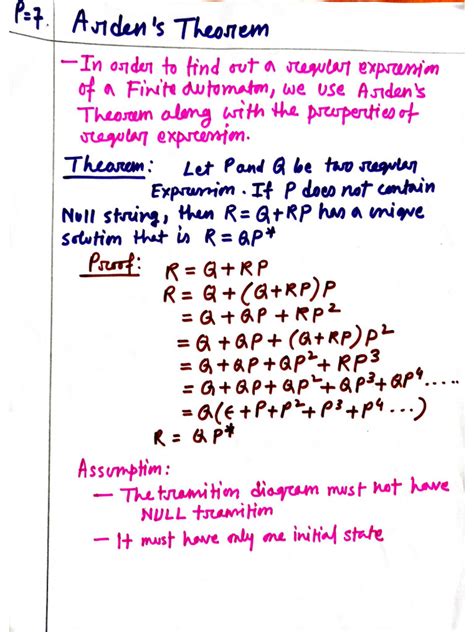 P=7.
Arden's Theorem
- In order to find out a regular expression
of a Finite Automaton, we use Arden's
Theorem along with the properties of
regular expression.
Theorem: Let P and Q be two regular
Expression. If P does not contain
Null string, then R = Q + RP has a unique
solution that is R = QP*
Proof: R = Q + RP
R = Q + (Q+RP)P
= Q + QP + RP²
= Q + QP + (Q+RP)P²
= Q + QP + QP² + RP³
= Q + QP + QP² + QP³ + QP⁴.....
= Q(ϵ + P + P² + P³ + P⁴...)
R = QP*
Assumption:
- The transition diagram must not have
NULL transition
- It must have only one initial state